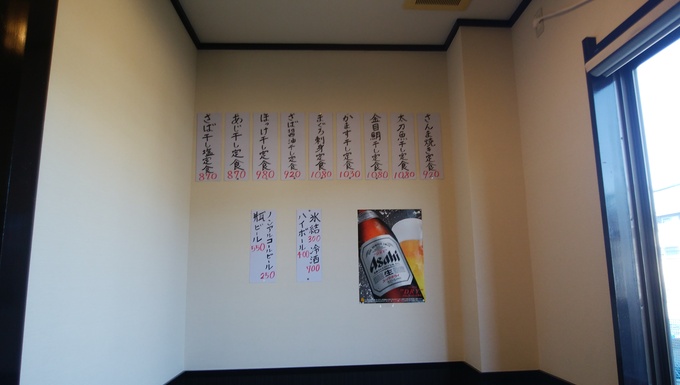 さんま焼き定食
920
太刀魚干し定食
1,080
金目鯛干し定食
1,080
かます干し定食
1,030
まぐろ刺身定食
1,080
さば醤油干し定食
920
ほっけ干し定食
980
あじ干し定食
870
さば干し塩定食
870
氷結 300
冷酒 700
ハイボール 400
ノンアルコールビール 250
瓶ビール 550
Asahi
生